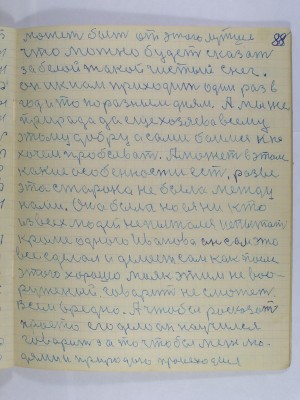 88
может быть от этого лучше
что можно будет сказать
за белой такой чистый снег.
он и к нам приходит один раз в
год а то по разным дням. А мы же
природа да еще хозяева всему
этому добру а сами боимся и не
хочем пробовать. А может в этом
какие особенности есть, разве
эта сторона не была между
нами. Она была но я никто
из всех людей не пытался испытать
кроме одного Иванова он сам это
все сделал и делает сам как после
этого хорошо
говорит не сможет.
Всем вредно. А чтобы рассказать
просто его дело он научился
говорить за то чтобы меж лю-
дями и природою происходил